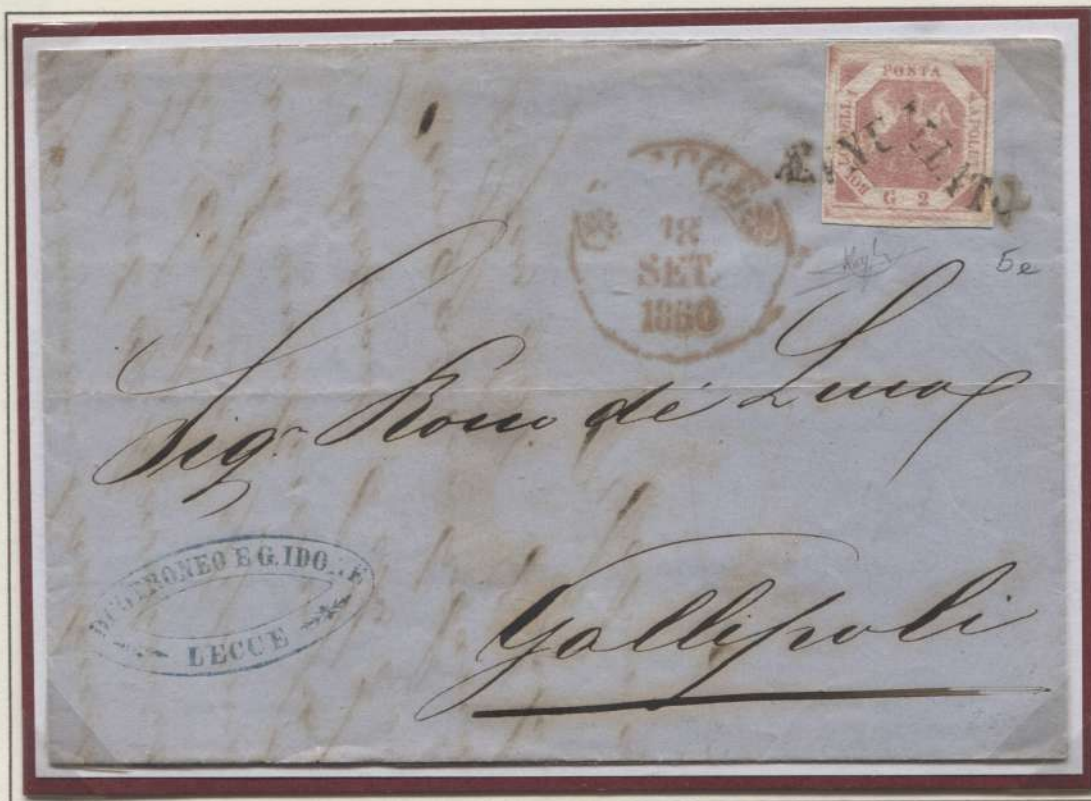 POSTA
BOLLO DELLA
NAPOLETANA
G 2
ANNULLATO
LECCE
18
SET.
1860
5e
Sig.r de Luca
Gallipoli
E G. IDO
LECCE